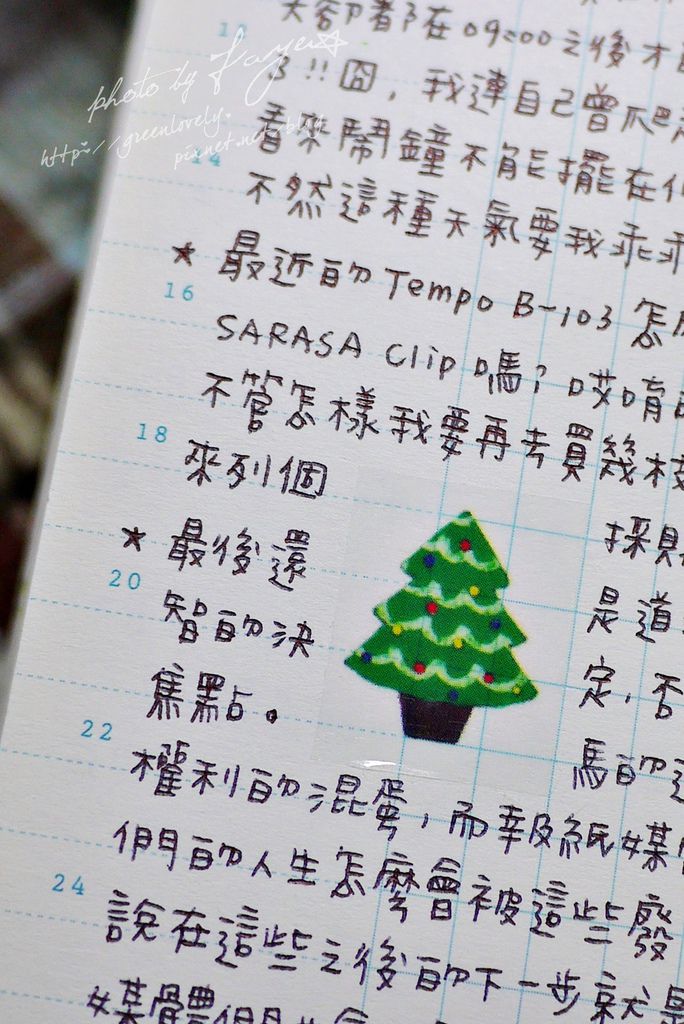 大約都在09:00之後才
photo by Faye
12
了!!囧,我連自己曾爬
http://greenlovely.
pixnet.net/blog
看來鬧鐘不能擺在
14
不然這種天氣要我乖乖
★ 最近的Tempo B-103 怎
16
SARASA Clip 嗎?哎唷
不管怎樣我要再去買幾枝
18
來列個
採
★ 最後還
是道
20
智的決
定,否
焦點。
馬的
22
權利的混蛋,而報紙媒
們的人生怎麼會被這些發
24
說在這些之後的下一步就是
媒體們